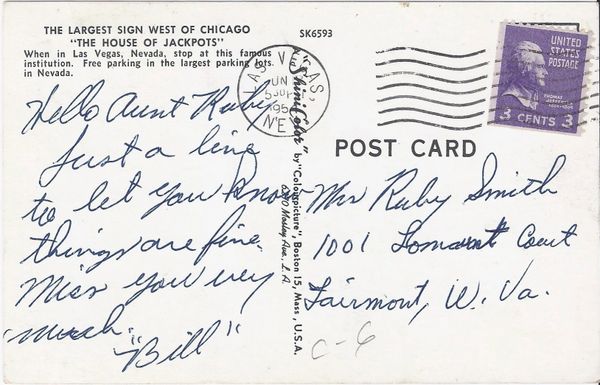 THE LARGEST SIGN WEST OF CHICAGO
"THE HOUSE OF JACKPOTS"
When in Las Vegas, Nevada, stop at this famous
institution. Free parking in the largest parking lots
in Nevada.
SK6593
Hello Aunt Ruby
Just a line
to let you know
things are fine.
Miss you very
much.
"Bill"
LAS VEGAS,
JUN
5
195
NE
"ShiniColor"
by "Colourpicture", Boston 15, Mass., U.S.A.
Mosley Ave., L.A.
POST CARD
UNITED
STATES
POSTAGE
THOMAS
JEFFERSON
3 CENTS 3
Mrs Ruby Smith
1001 Court
Fairmont, W. Va.
C-6